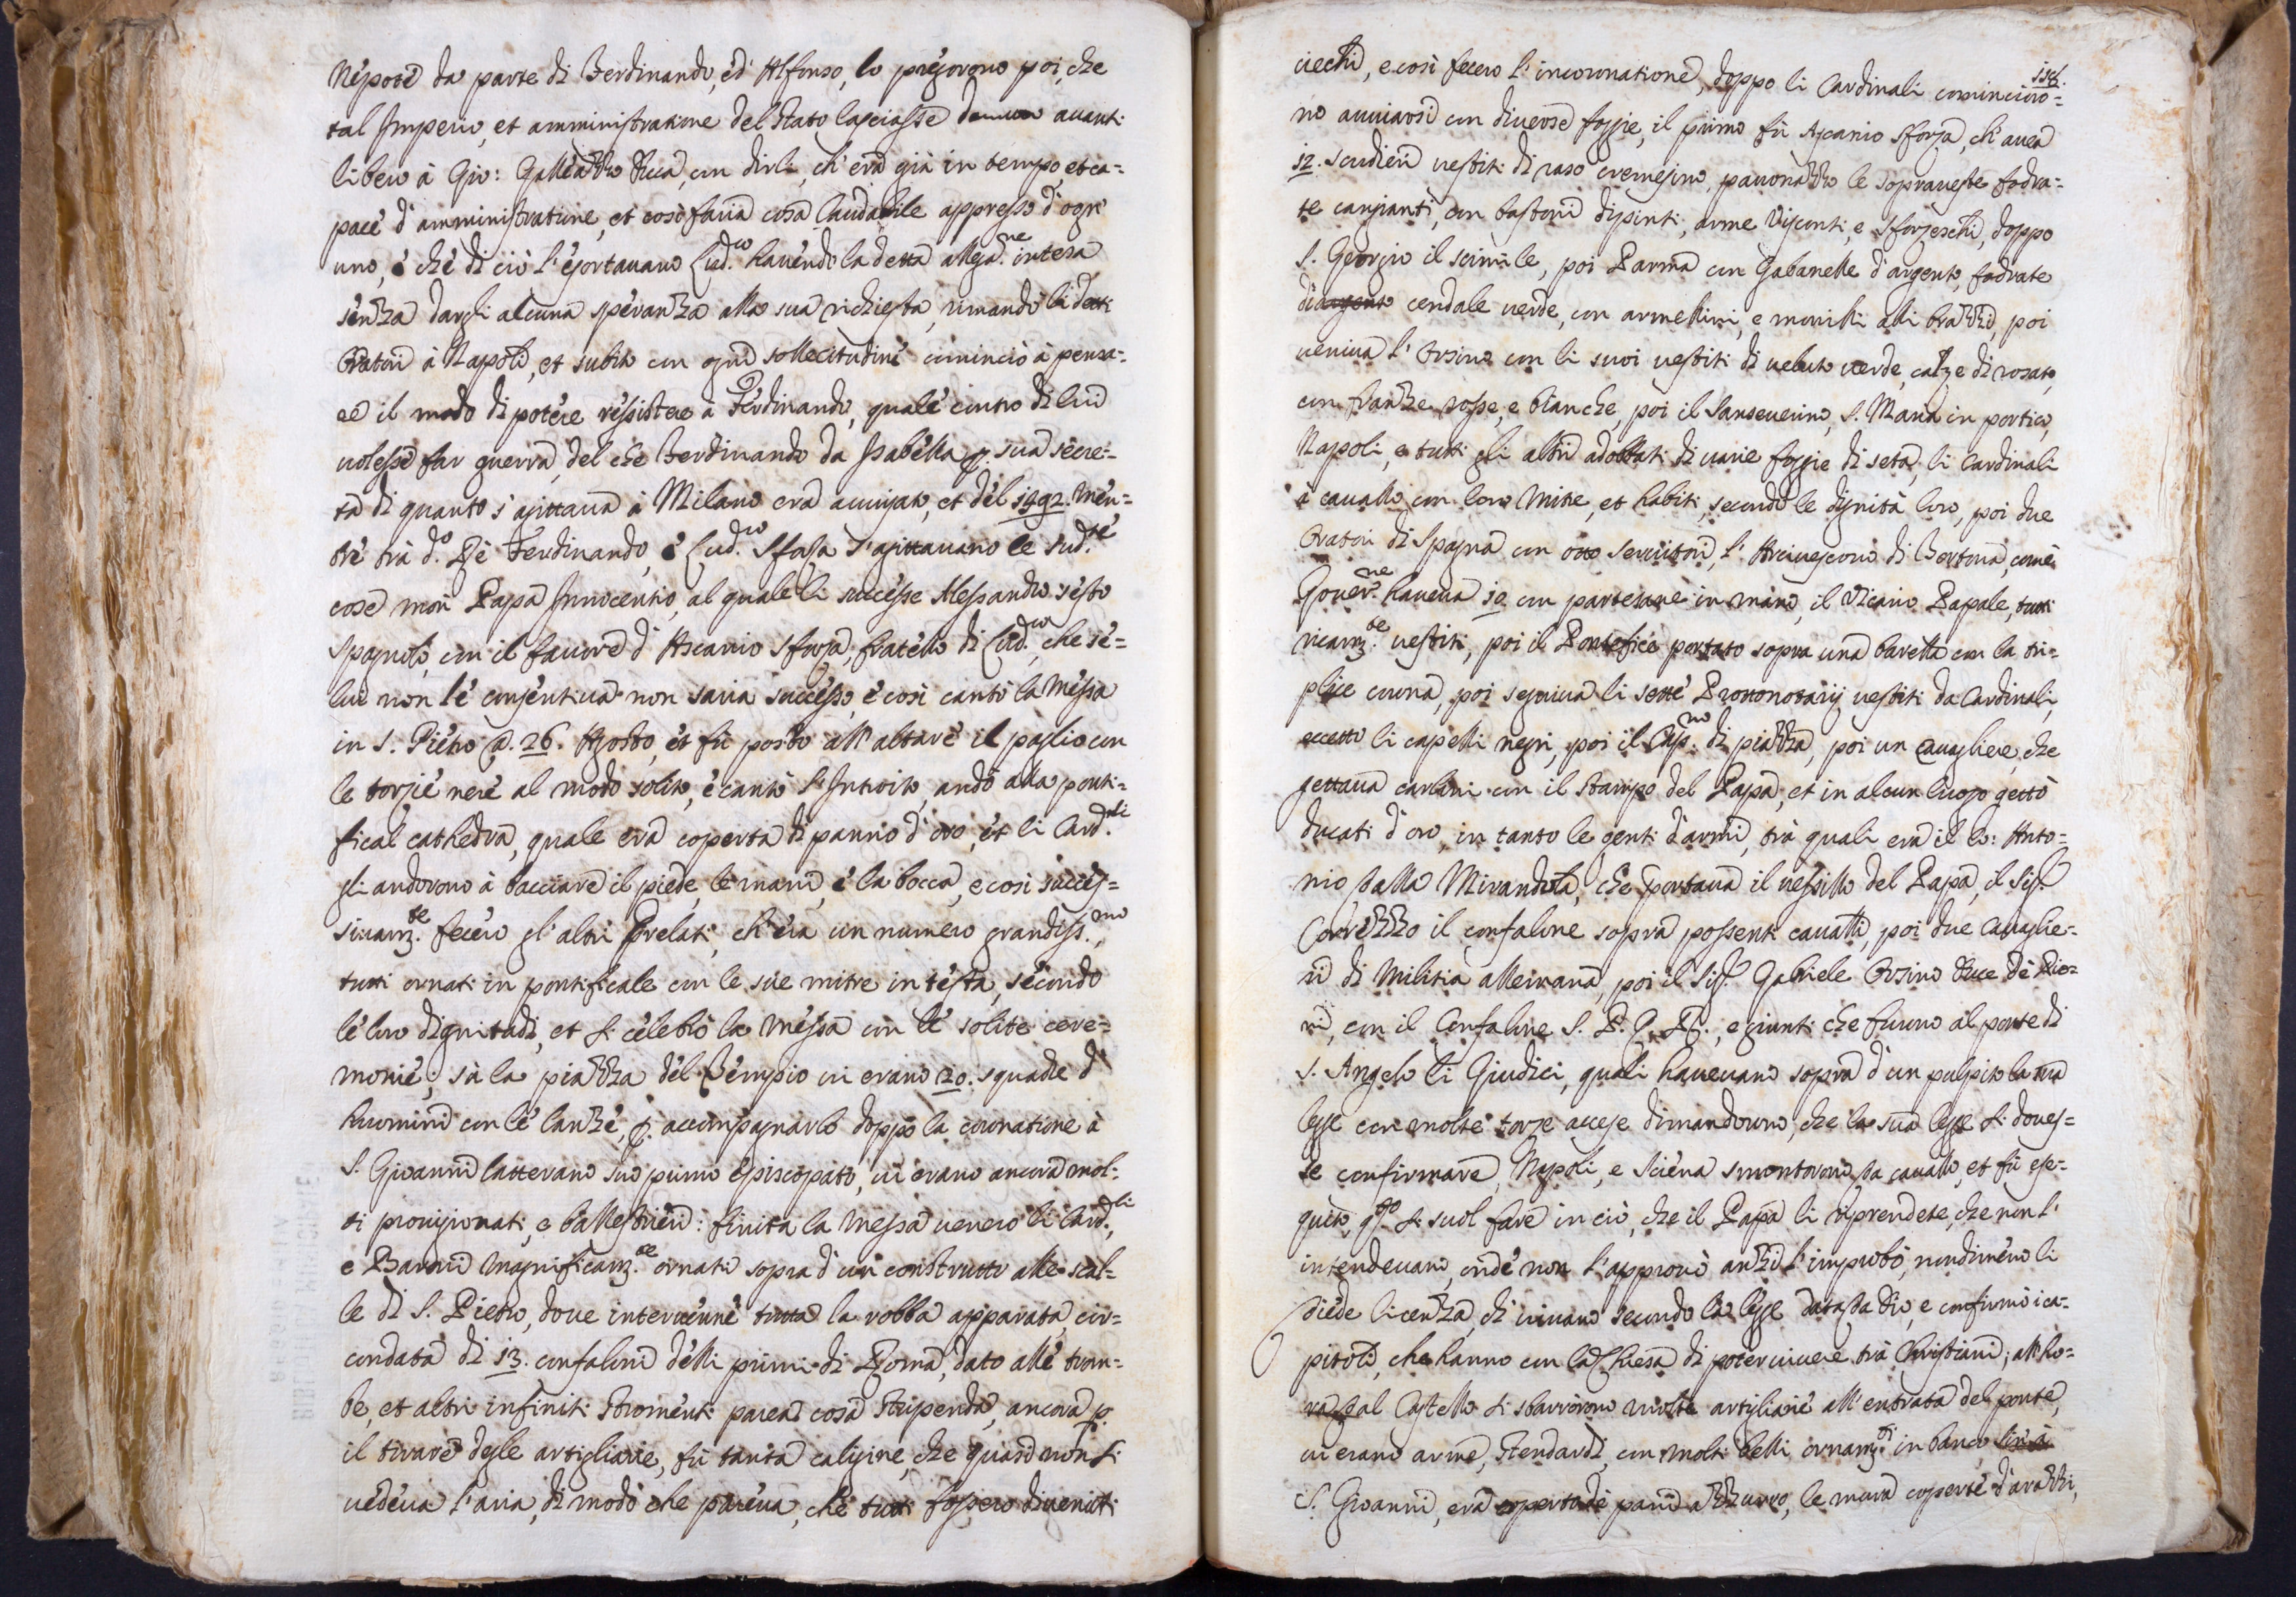 Nepote da parte di Ferdinando, ed Alfonso, lo pregorono poi, che
tal Imperio, et amministratione del Stato lasciasse avanti
libero à Gio: Galleazzo Duca, con dirli, ch'era già in tempo, et ca-
pace d'amministratione, et così faria cosa laudabile appresso d'ogn'
uno, è che di ciò l'esortavano Lud.co havendo la detta allega.ne intesa
senza dargli alcuna speranza alla sua richiesta, rimandò li detti
Oratori à Napoli, et subito con ogni sollecitudine cominciò à pensa-
re il modo di potere ressistere à Ferdinando, quale contro di lui
volesse far guerra, del che Ferdinando da Isabella p. sua secre-
ta di quanto s'agittava à Milano era avvisato, et del 1492. men-
tre trà d.o Rè Ferdinando, è Lud.co Sforza s'agittavano le sud.te
cose morì Papa Innocentio, al quale li successe Alessandro sesto
Spagnolo, con il favore d'Ascanio Sforza, fratello di Lud.co, che se-
lui non le consentiva non saria successo, è così cantò la messa
in S. Pietro a. 26. Agosto, et fù posto all'altare il paglio con
le torgie nere al modo solito, è cantò l'Introito, andò alla ponti-
fical cathedra, quale era coperta di panno d'oro, et li Card.li
gli andorono à bacciare il piede, le mani, è la bocca, e così succes-
sivam.te fecero gl'altri Prelati, ch'era un numero grandiss.mo,
tutti ornati in pontificale con le sue mitre in testa, secondo
le loro dignitadi, et si celebrò la messa con le solite cere-
monie, sù la piazza del Tempio vi erano 20. squadre d'
huomini con le lanze, p. accompagnarlo doppo la coronatione à
S. Giovanni latterano suo primo episcopato, vi erano ancora mol-
ti provisionati, e ballestrieri: finita la messa venero li Card.li,
e Baroni magnificam.te ornati sopra d'un construtto alle scal-
le di S. Pietro, dove intervenne tutta la robba apparata, cir-
condata di 13. confaloni delli primi di Roma, dato alle trom-
be, et altri infiniti stromenti parea cosa stupenda, ancora p.
il tirare degle artigliarie, fù tanta caligine, che quasi non si
vedeva l'aria, di modo che pareva, che tutti fossero divenuti
194.
ciechi, e così fecero l'incoronatione, doppo li Cardinali comincioro-
no avviarsi con diverse foggie, il primo fù Ascanio Sforza, ch'avea
12. scudieri vestiti di raso cremesino, pavonazzo le sopraveste fodra-
te cangianti, con bastoni dipinti, arme Visconti, e Sforzeschi, doppo
S. Georgio il scimile, poi Parma con Gabanelle d'argento, fodrate
di cendale verde, con armellini, e monilli alli brazzi, poi
veniva l'Orsino con li suoi vestiti di veluto verde, calze di rosato,
con franze rosse, e bianche, poi il Sanseverino, S. Maria in portico,
Napoli, e tutti gli altri adobbati di varie foggie di seta, li Cardinali
à cavallo con loro mitre, et habiti, secondo le dignità loro, poi due
Oratori di Spagna con otto servitori, l'Arcivescovo di Tortona, come
Gover.ne haveva 10 con partesane in mano, il Vicario Papale, tutti
ricam.te vestiti, poi il Pontefice portato sopra una baretta con la tri-
plice corona, poi seguiva li sette Prottonotarij vestiti da Cardinali,
eccetto li capelli negri, poi il Cap.no di piazza, poi un Cavagliere, che
gettava carlini con il stampo del Papa, et in alcun luogo gettò
ducati d'oro, in tanto le genti d'armi, trà quali era il Co: Anto-
nio dalla Mirandola, che portava il vessillo del Papa, il Sig.r
Correzzo il confalone sopra possenti cavalli, poi due Cavaglie-
ri di Militia allemana, poi il Sig.r Gabriele Orsino Duce de Pio-
ni, con il Confalone S. P. Q. R., e giunti che furono al ponte di
S. Angelo li Giudici, quali havevano sopra d'un pulpito la sua
legge con molte torze accese dimandorono, che la sua legge si doves-
se confirmare, Napoli, e Sciena smontorono da cavallo, et fù ese-
guito, q.to si suol fare in ciò, che il Papa li riprendete, che non l'
intendevano, onde non l'approvò anzi l'improbò, nondimeno li
diede licenza, di vivano secondo la legge data da Dio, e confirmò i ca-
pitoli, che hanno con la Chiesa di poter vivere trà Christiani; all'ho-
ra dal Castello si sbarrorono molte artigliarie all'entrata del ponte,
vi erano arme, stendardi, con molti belli ornam.ti in banco
S. Giovanni, era coperta de pani azzurro, le mura coperte d'arazzi,